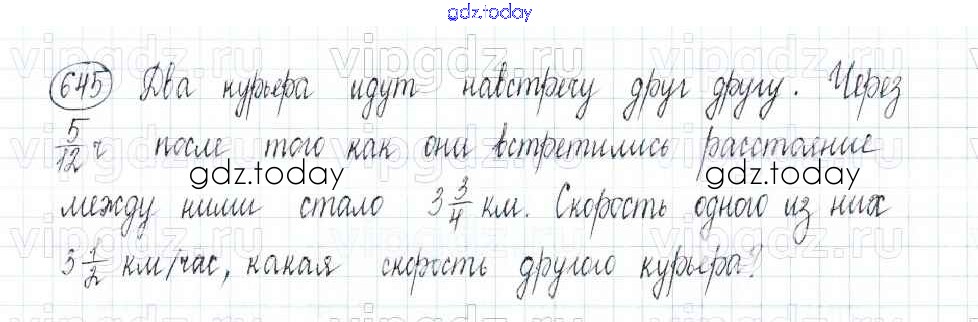 gdz.today
vipgdz.ru vipgdz.ru vipgdz.ru
645 Два курьера идут навстречу друг другу. Через
5/12 ч после того как они встретились расстояние
gdz.today gdz.today
между ними стало 3 3/4 км. Скорость одного из них
3 1/2 км/час, какая скорость другого курьера?